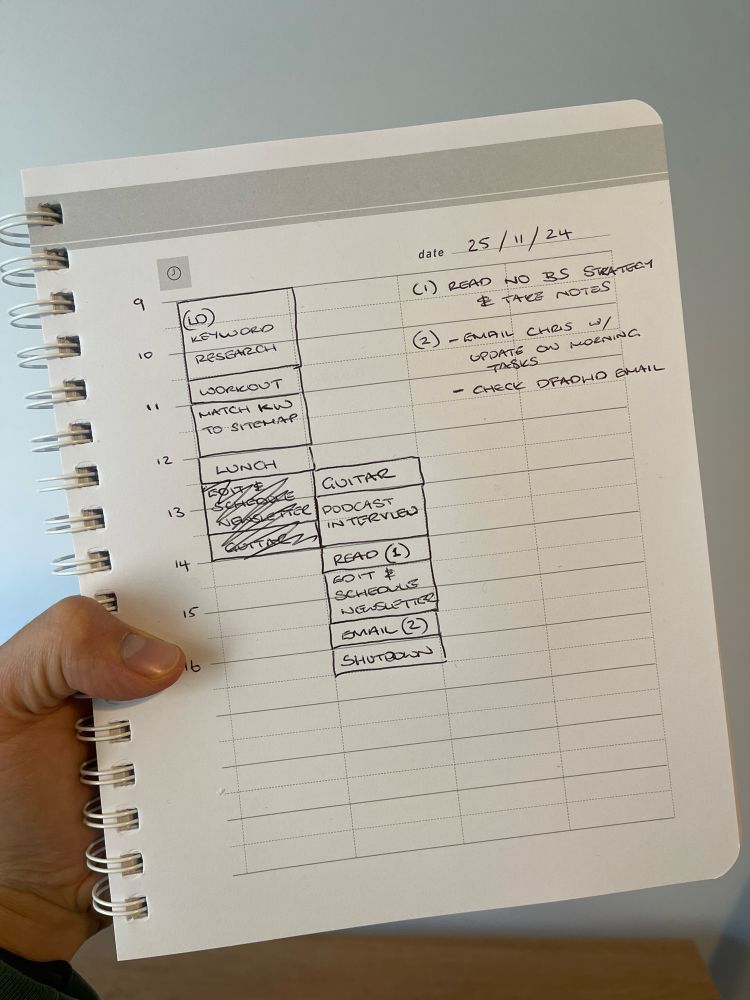 date 25/11/24
9
10
11
12
13
14
15
16
(LD)
KEYWORD
RESEARCH
WORKOUT
MATCH KW
TO SITEMAP
LUNCH
EDIT &
SCHEDULE
NEWSLETTER
GUITAR
GUITAR
PODCAST
INTERVIEW
READ (1)
EDIT &
SCHEDULE
NEWSLETTER
EMAIL (2)
SHUTDOWN
(1) READ NO BS STRATEGY
& TAKE NOTES
(2) - EMAIL CHRIS W/
UPDATE ON MORNING
TASKS
- CHECK DFADHD EMAIL